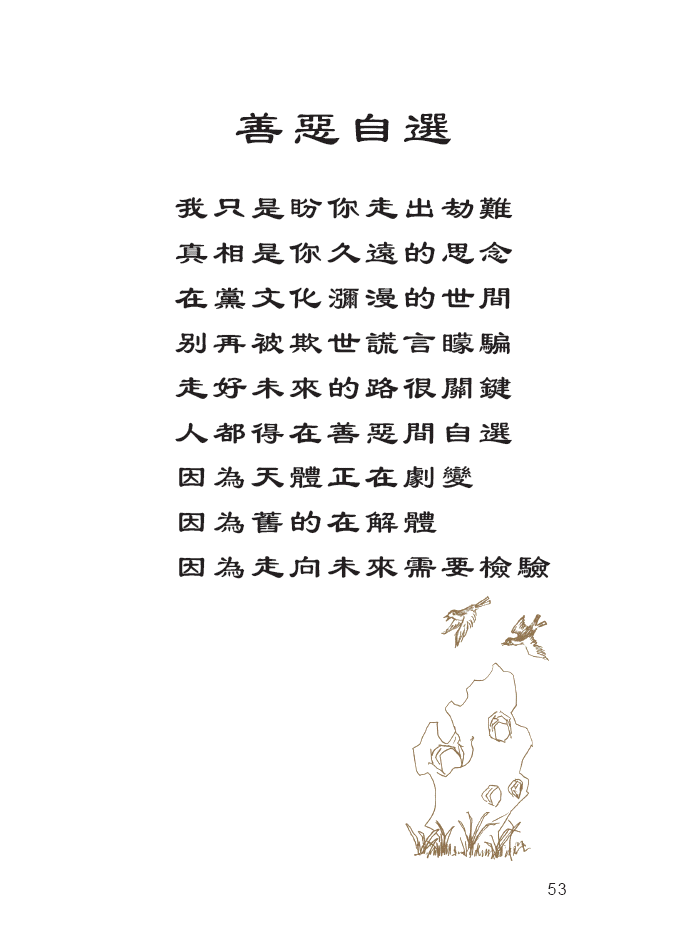 善惡自選
我只是盼你走出劫難
真相是你久遠的思念
在黨文化瀰漫的世間
別再被欺世謊言矇騙
走好未來的路很關鍵
人都得在善惡間自選
因為天體正在劇變
因為舊的在解體
因為走向未來需要檢驗
53